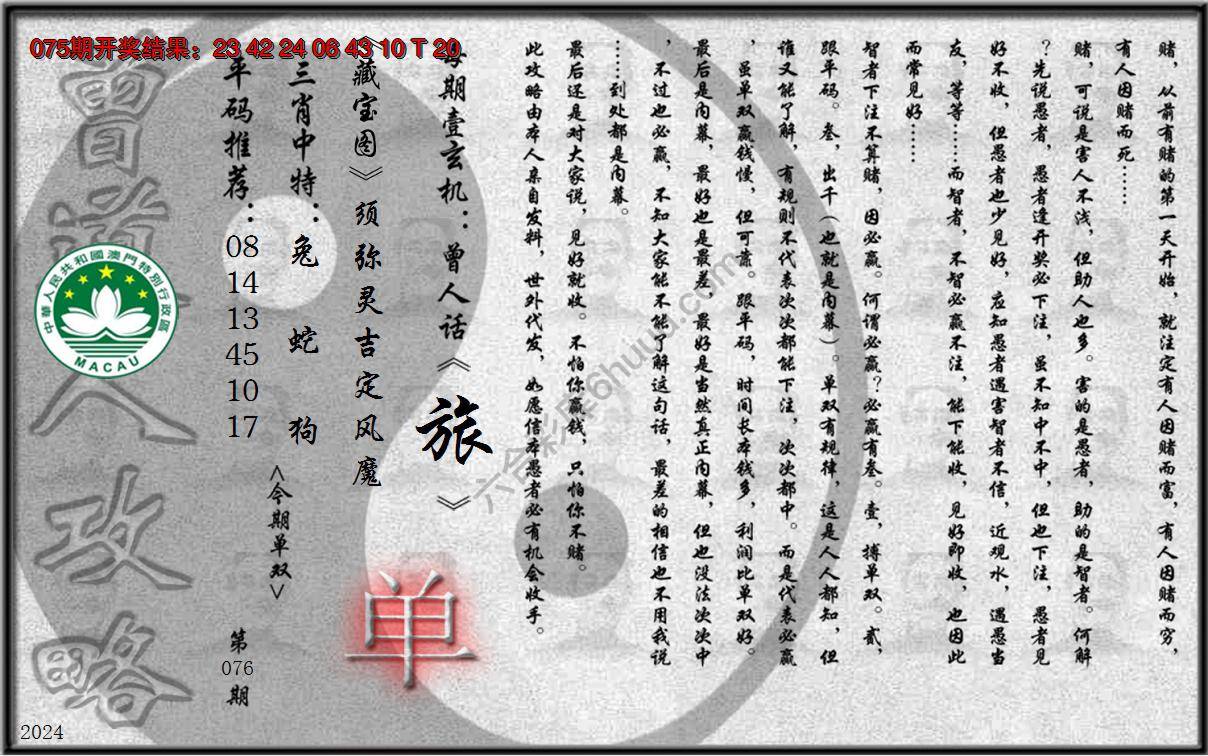 075期开奖结果：23 42 24 06 43 10 T 20
赌，从前有赌的第一天开始，就注定有人因赌而富，有人因赌而穷，
有人因赌而死……
赌，可说是害人不浅，但助人也多。害的是愚者，助的是智者。何解
？先说愚者，愚者逢开奖必下注，虽不知中不中，但也下注，愚者见
好不收，但愚者也少见好，应知愚者遇害智者不信，近观水，遇愚当
友，等等……而智者，不智必赢不注，能下能收，见好即收，也因此
而常见好……
智者下注不算赌，因必赢。何谓必赢？必赢有叁。壹，搏单双。贰，
跟平码。叁，出千（也就是内幕）。单双有规律，这是人人都知，但
谁又能了解，有规则不代表次次都能下注，次次都中。而是代表必赢
，虽单双赢钱慢，但可靠。跟平码，时间长本钱多，利润比单双好。
最后是内幕，最好也是最差，最好是当然真正内幕，但也没法次次中
，不过也必赢，不知大家能不能了解这句话，最差的相信也不用我说
……到处都是内幕。
最后还是对大家说，见好就收。不怕你赢钱，只怕你不赌。
此攻略由本人亲自发料，世外代发，如愿信本愚者必有机会收手。
每期壹玄机：曾人话《旅》
《藏宝图》须弥灵吉定风魔
单
三肖中特：兔 蛇 狗
<今期单双>
平码推荐：08 14 13 45 10 17
第076期
曾道人攻略
中華人民共和國澳門特別行政區
MACAU
2024